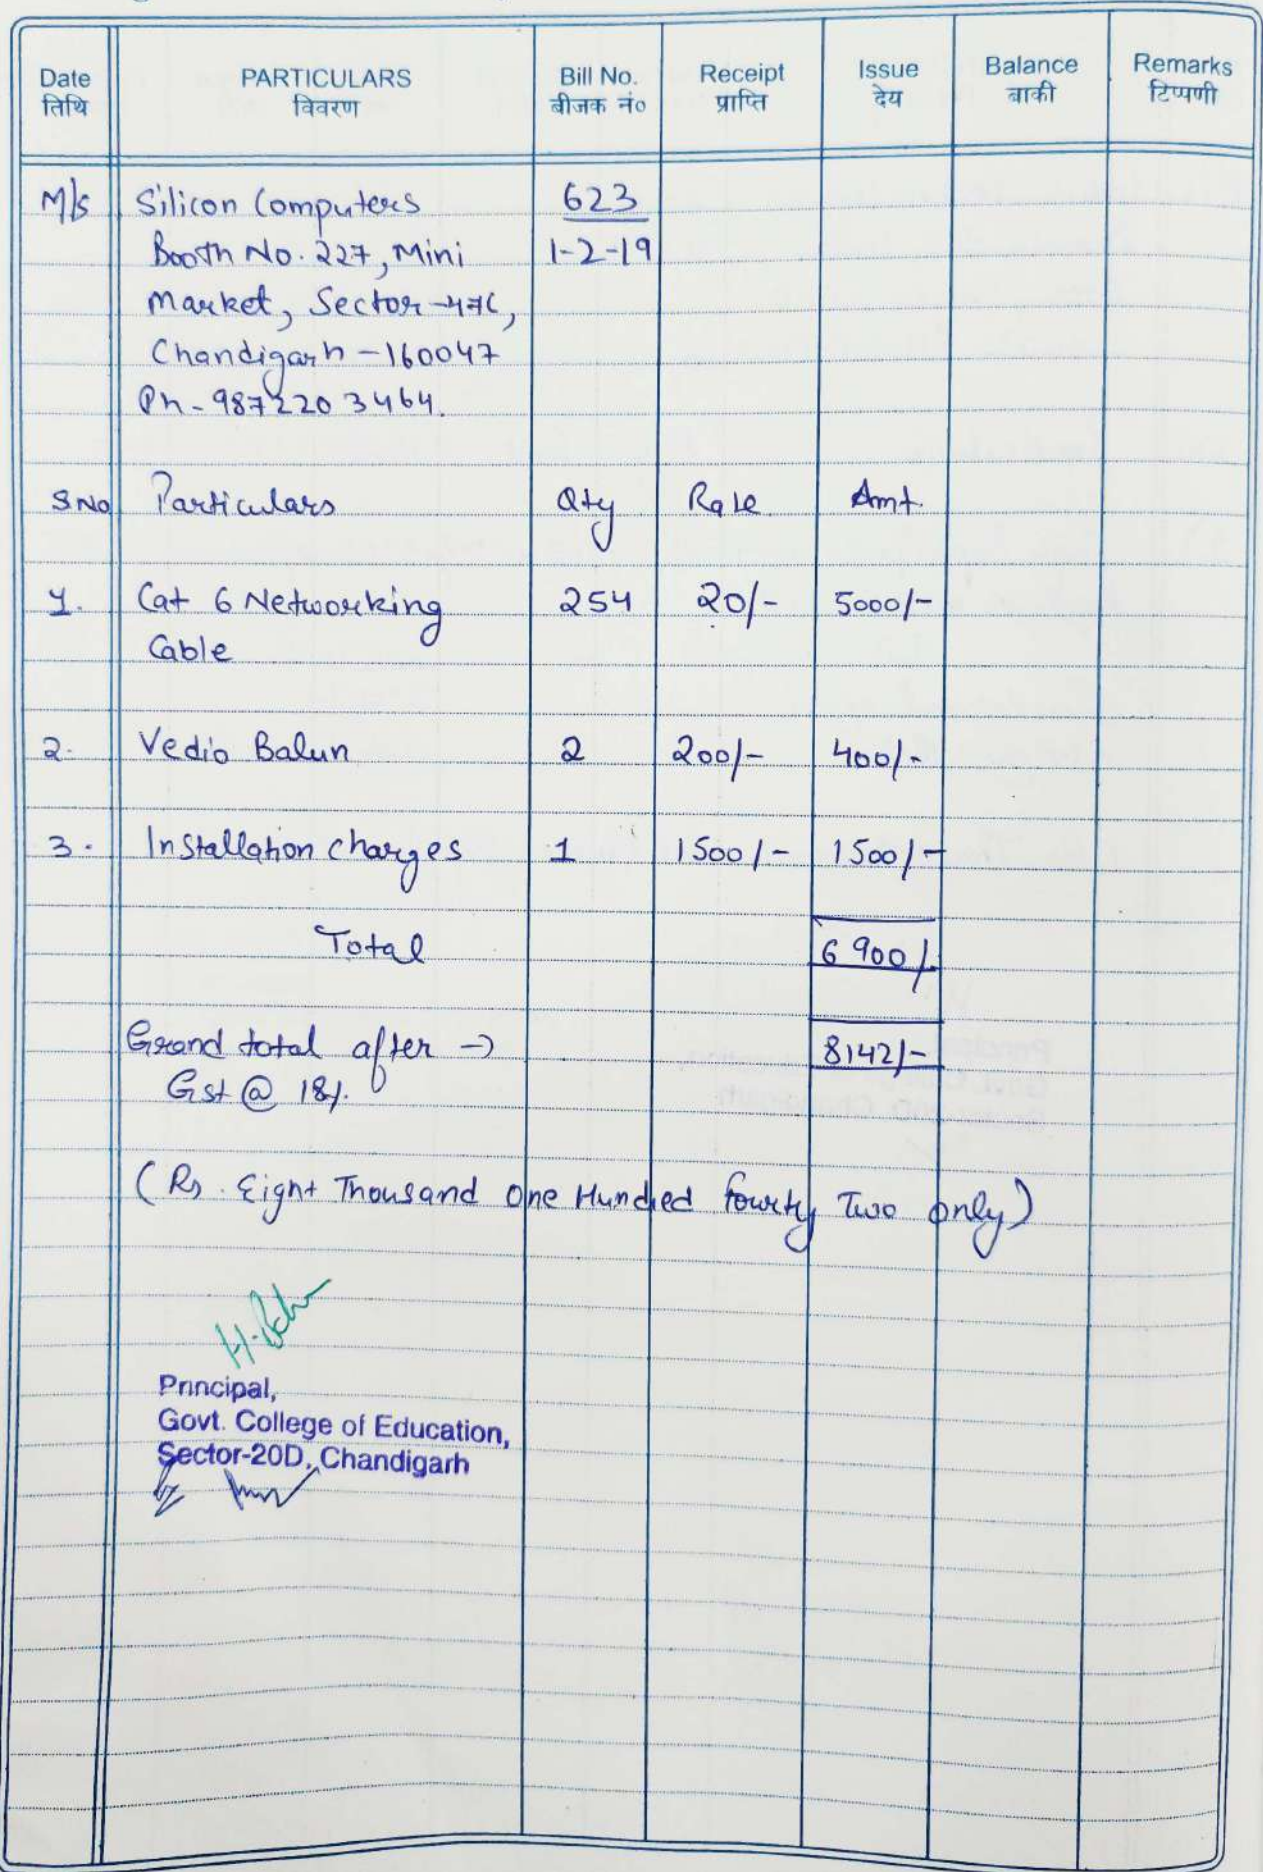 Date PARTICULARS Bill No. Receipt Issue Balance Remarks
तिथि विवरण बीजक नं० प्राप्ति देय बाकी टिप्पणी
M/s Silicon Computers 623
Booth No. 227, Mini 1-2-19
Market, Sector-47C,
Chandigarh-160047
Ph-9872203464.
S No Particulars Qty Rate Amt.
1. Cat 6 Networking 254 20/- 5000/-
Cable
2. Vedio Balun 2 200/- 400/-
3. Installation charges 1 1500/- 1500/-
Total 6900/-
Grand total after → 8142/-
Gst @ 18%.
(Rs. Eight Thousand One Hundred fourty Two only)
Principal,
Govt. College of Education,
Sector-20D, Chandigarh